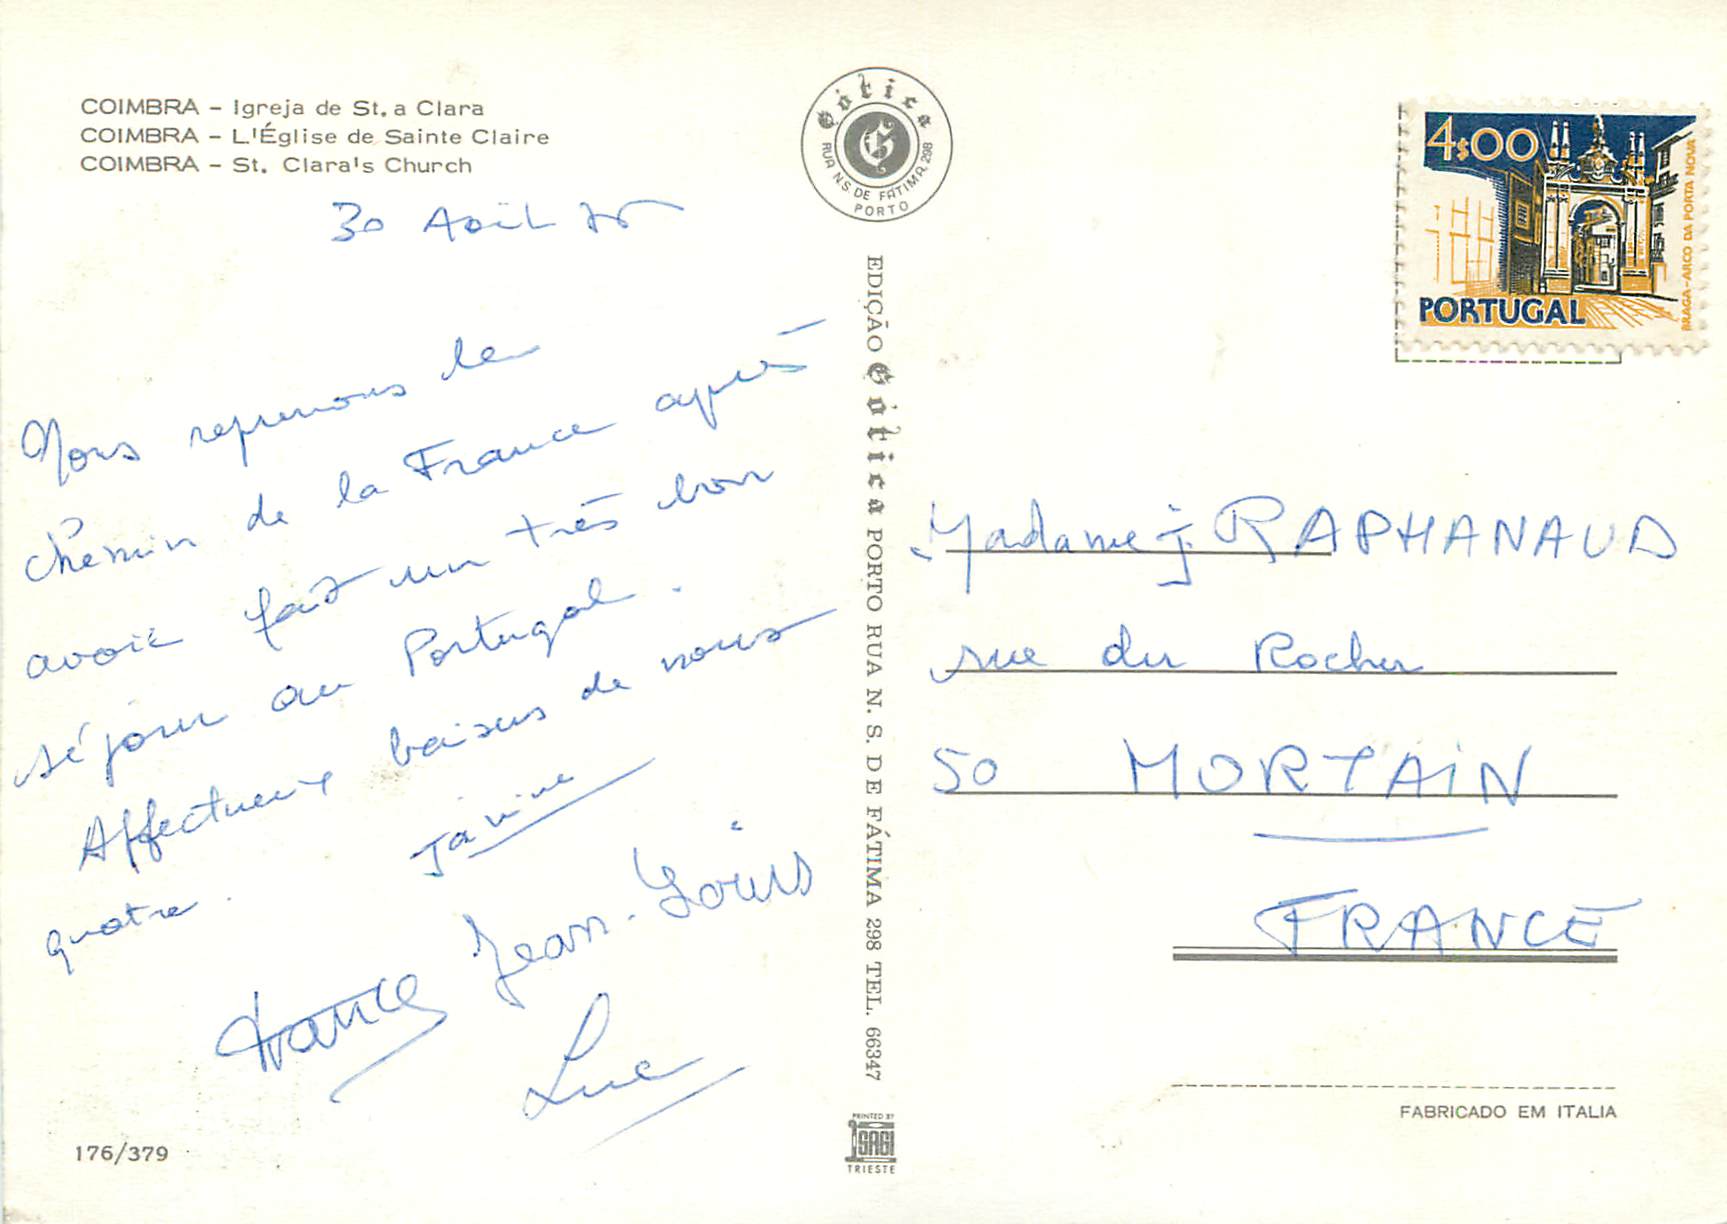 COIMBRA - Igreja de St. a Clara
COIMBRA - L'Église de Sainte Claire
COIMBRA - St. Clara's Church
30 Août 75
Nous reprenons le
chemin de la France après
avoir fait un très bon
séjour au Portugal.
Affectueux baisers de nous
quatre.
Janine
Jean-Louis
France
Luc
176/379
Gótica
RUA N.S. DE FÁTIMA, 298
PORTO
EDIÇÃO Gótica PORTO RUA N. S. DE FÁTIMA 298 TEL. 66347
PRINTED BY
SAGI
TRIESTE
4$00
PORTUGAL
BRAGA-ARCO DA PORTA NOVA
Madame J. RAPHANAUD
rue du Rocher
50 MORTAIN
FRANCE
FABRICADO EM ITALIA